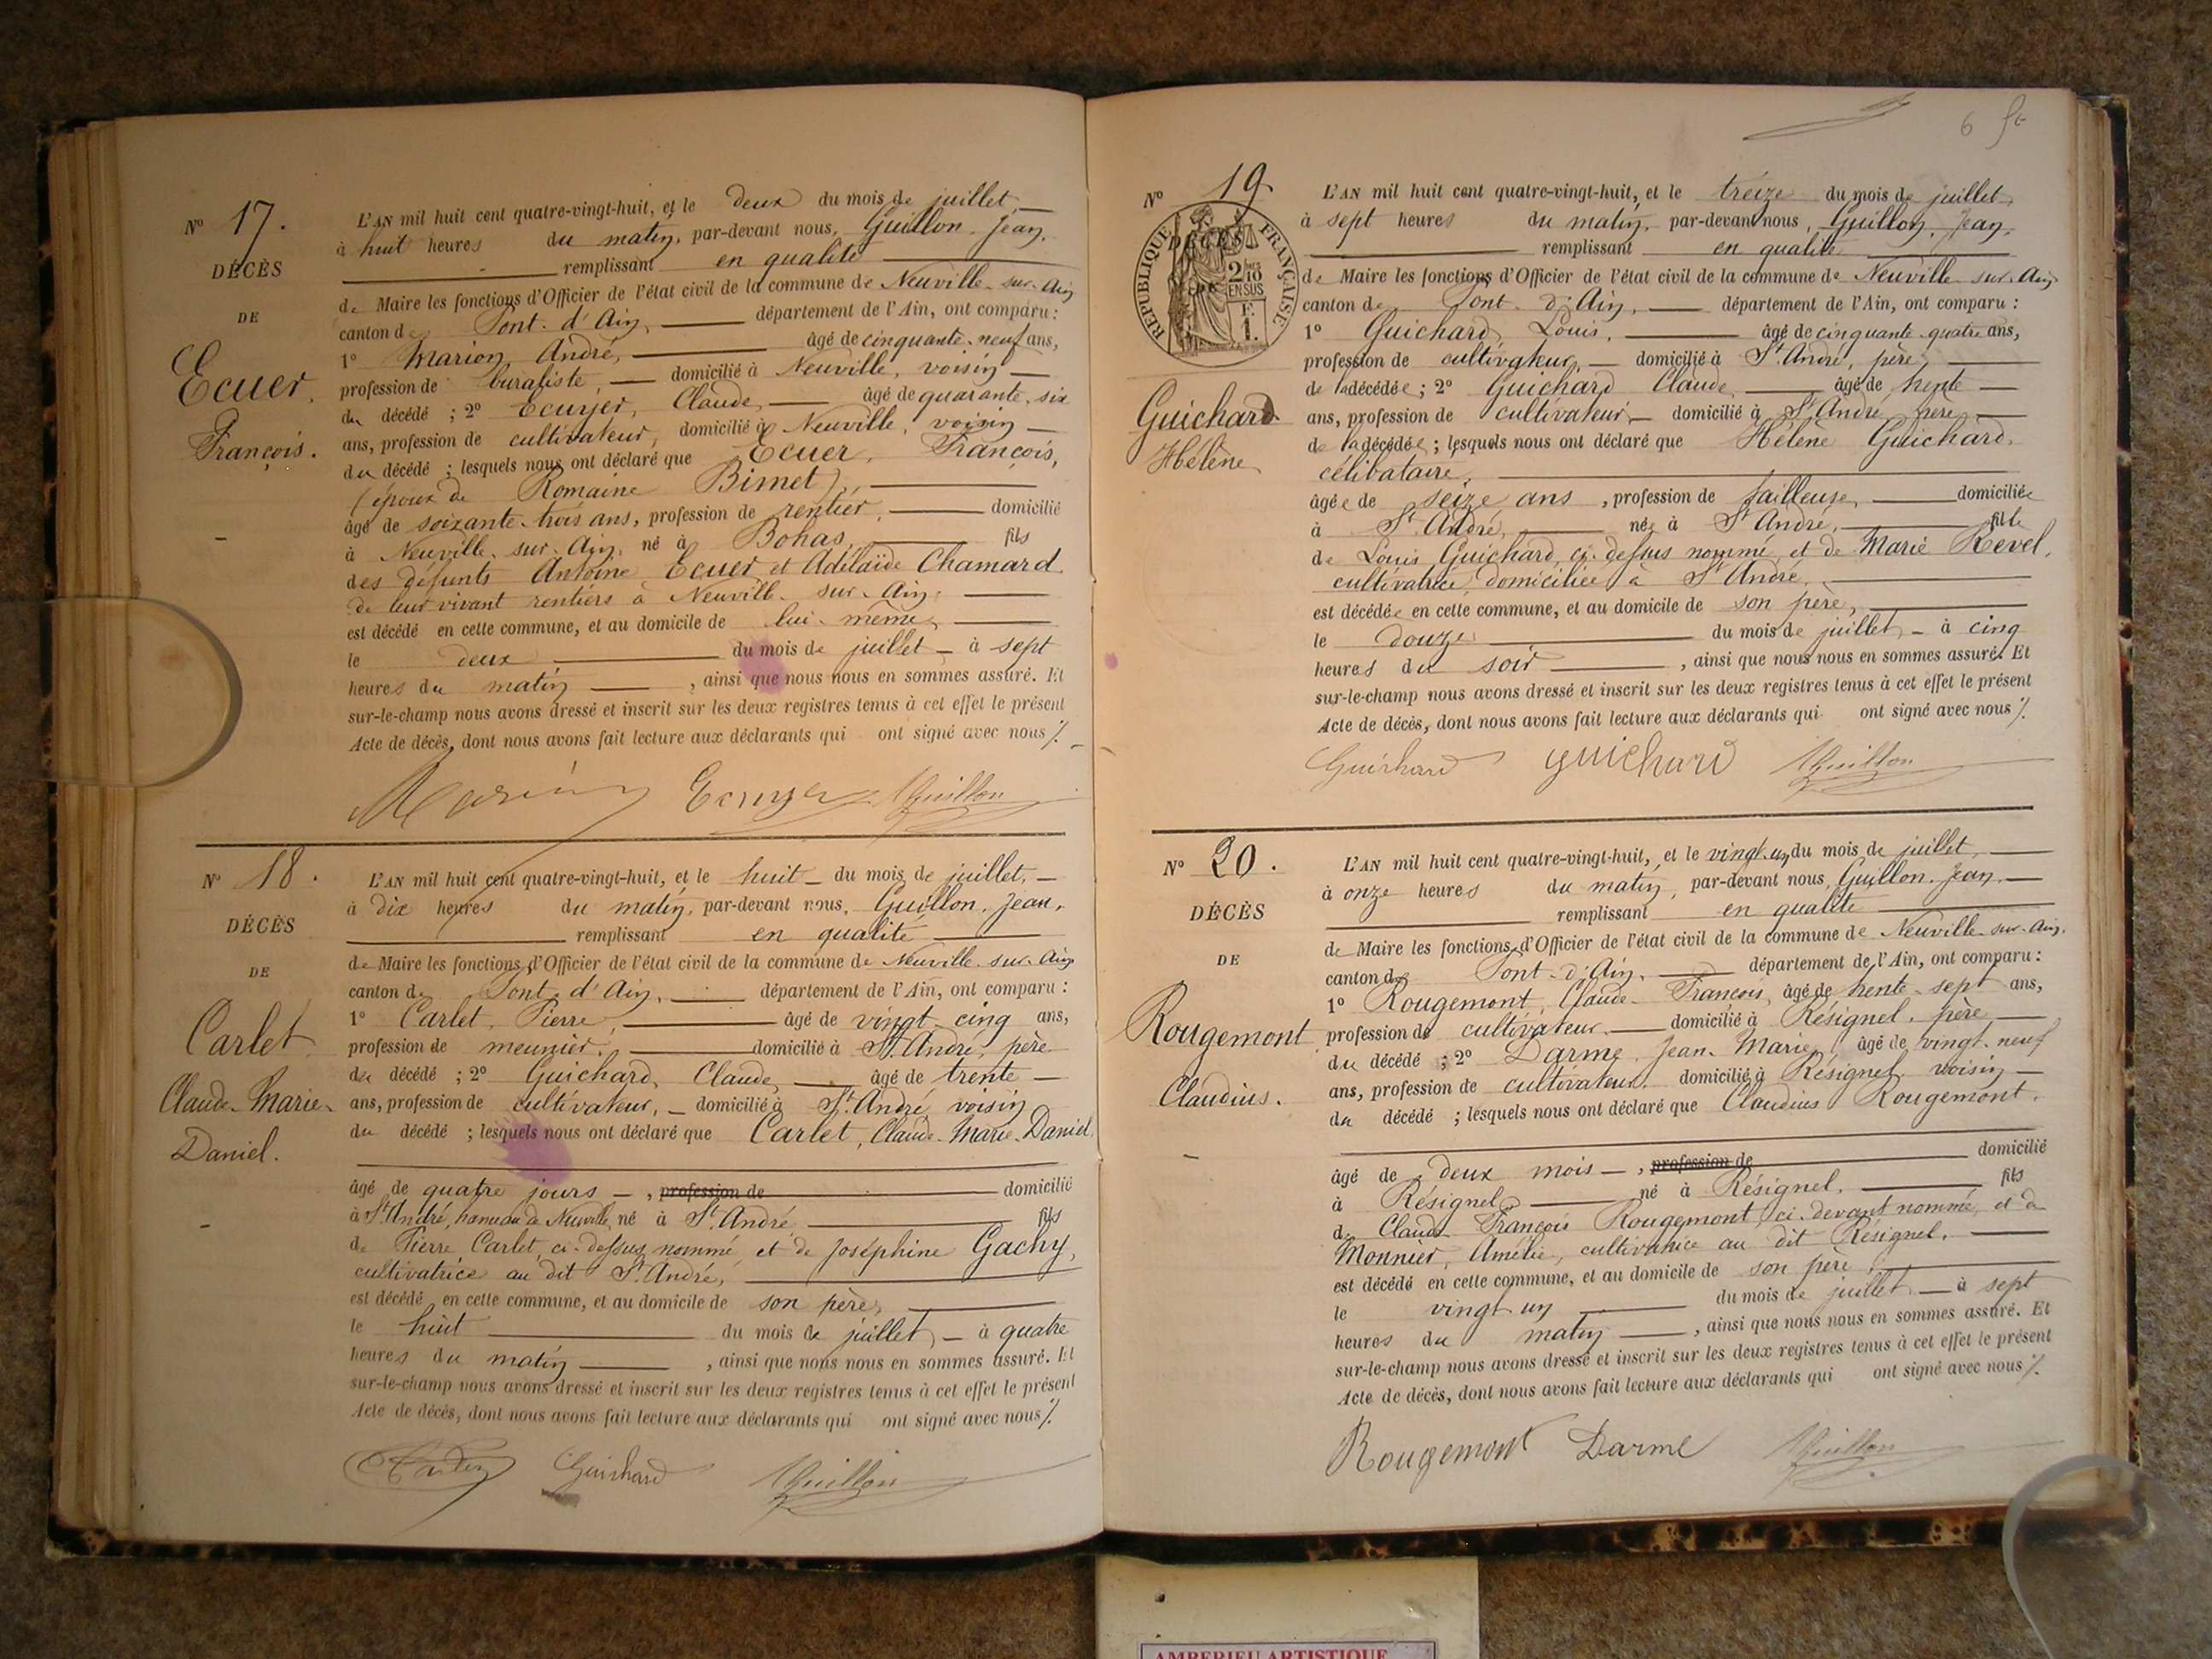 N° 17.
DÉCÈS
DE
Ecuer
François.
L'AN mil huit cent quatre-vingt-huit, et le deux du mois de juillet
à huit heures du matin, par-devant nous, Guillon, Jean,
remplissant en qualité
de Maire les fonctions d'Officier de l'état civil de la commune de Neuville-sur-Ain
canton de Pont-d'Ain, département de l'Ain, ont comparu :
1° Marion, André, âgé de cinquante-neuf ans,
profession de buraliste, domicilié à Neuville, voisin
du décédé ; 2° Ecuyer, Claude, âgé de quarante-six
ans, profession de cultivateur, domicilié à Neuville, voisin
du décédé ; lesquels nous ont déclaré que Ecuer, François,
(époux de Romaine Bimet),
âgé de soixante-trois ans, profession de rentier, domicilié
à Neuville-sur-Ain, né à Bohas, fils
des défunts Antoine Ecuer et Adélaïde Chamard
de leur vivant rentiers à Neuville-sur-Ain,
est décédé en cette commune, et au domicile de lui-même,
le deux du mois de juillet à sept
heures du matin, ainsi que nous nous en sommes assuré. Et
sur-le-champ nous avons dressé et inscrit sur les deux registres tenus à cet effet le présent
Acte de décès, dont nous avons fait lecture aux déclarants qui ont signé avec nous ./.
Marion Ecuyer Guillon
N° 18.
DÉCÈS
DE
Carlet
Claude-Marie-
Daniel.
L'AN mil huit cent quatre-vingt-huit, et le huit du mois de juillet,
à dix heures du matin, par-devant nous, Guillon, Jean,
remplissant en qualité
de Maire les fonctions d'Officier de l'état civil de la commune de Neuville-sur-Ain
canton de Pont-d'Ain, département de l'Ain, ont comparu :
1° Carlet, Pierre, âgé de vingt-cinq ans,
profession de meunier, domicilié à St. André, père
du décédé ; 2° Guichard, Claude, âgé de trente
ans, profession de cultivateur, domicilié à St. André, voisin
du décédé ; lesquels nous ont déclaré que Carlet, Claude-Marie-Daniel,
âgé de quatre jours, profession de domicilié
à St. André, hameau de Neuville, né à St. André, fils
de Pierre Carlet, ci-dessus nommé et de Joséphine Gachy,
cultivatrice au dit St. André,
est décédé en cette commune, et au domicile de son père,
le huit du mois de juillet, à quatre
heures du matin, ainsi que nous nous en sommes assuré. Et
sur-le-champ nous avons dressé et inscrit sur les deux registres tenus à cet effet le présent
Acte de décès, dont nous avons fait lecture aux déclarants qui ont signé avec nous ./.
Guichard Guillon
6
N° 19.
DÉCÈS
RÉPUBLIQUE FRANÇAISE
2/10 EN SUS
F.
1.
Guichard
Hélène
L'AN mil huit cent quatre-vingt-huit, et le treize du mois de juillet,
à sept heures du matin, par-devant nous, Guillon, Jean,
remplissant en qualité
de Maire les fonctions d'Officier de l'état civil de la commune de Neuville-sur-Ain
canton de Pont-d'Ain, département de l'Ain, ont comparu :
1° Guichard, Louis, âgé de cinquante-quatre ans,
profession de cultivateur, domicilié à St. André, père
de la décédée ; 2° Guichard Claude, âgé de trente
ans, profession de cultivateur, domicilié à St. André, frère
de la décédée ; lesquels nous ont déclaré que Hélène Guichard,
célibataire,
âgée de seize ans, profession de tailleuse, domiciliée
à St. André, née à St. André, fille
de Louis Guichard, ci-dessus nommé et de Marie Revel,
cultivatrice, domiciliée à St. André,
est décédée en cette commune, et au domicile de son père,
le douze du mois de juillet à cinq
heures du soir, ainsi que nous nous en sommes assuré. Et
sur-le-champ nous avons dressé et inscrit sur les deux registres tenus à cet effet le présent
Acte de décès, dont nous avons fait lecture aux déclarants qui ont signé avec nous ./.
Guichard guichard Guillon
N° 20.
DÉCÈS
DE
Rougemont
Claudius.
L'AN mil huit cent quatre-vingt-huit, et le vingt-un du mois de juillet,
à onze heures du matin, par-devant nous, Guillon, Jean,
remplissant en qualité
de Maire les fonctions d'Officier de l'état civil de la commune de Neuville-sur-Ain,
canton de Pont-d'Ain, département de l'Ain, ont comparu :
1° Rougemont, Claude-François, âgé de trente-sept ans,
profession de cultivateur, domicilié à Résignel, père
du décédé ; 2° Darme, Jean-Marie, âgé de vingt-neuf
ans, profession de cultivateur, domicilié à Résignel, voisin
du décédé ; lesquels nous ont déclaré que Claudius Rougemont,
âgé de deux mois, profession de domicilié
à Résignel, né à Résignel, fils
de Claude François Rougemont, ci-devant nommé, et de
Monnier, Amélie, cultivatrice au dit Résignel,
est décédé en cette commune, et au domicile de son père,
le vingt-un du mois de juillet à sept
heures du matin, ainsi que nous nous en sommes assuré. Et
sur-le-champ nous avons dressé et inscrit sur les deux registres tenus à cet effet le présent
Acte de décès, dont nous avons fait lecture aux déclarants qui ont signé avec nous ./.
Rougemont Darme Guillon
AMBERIEU ARTISTIQUE